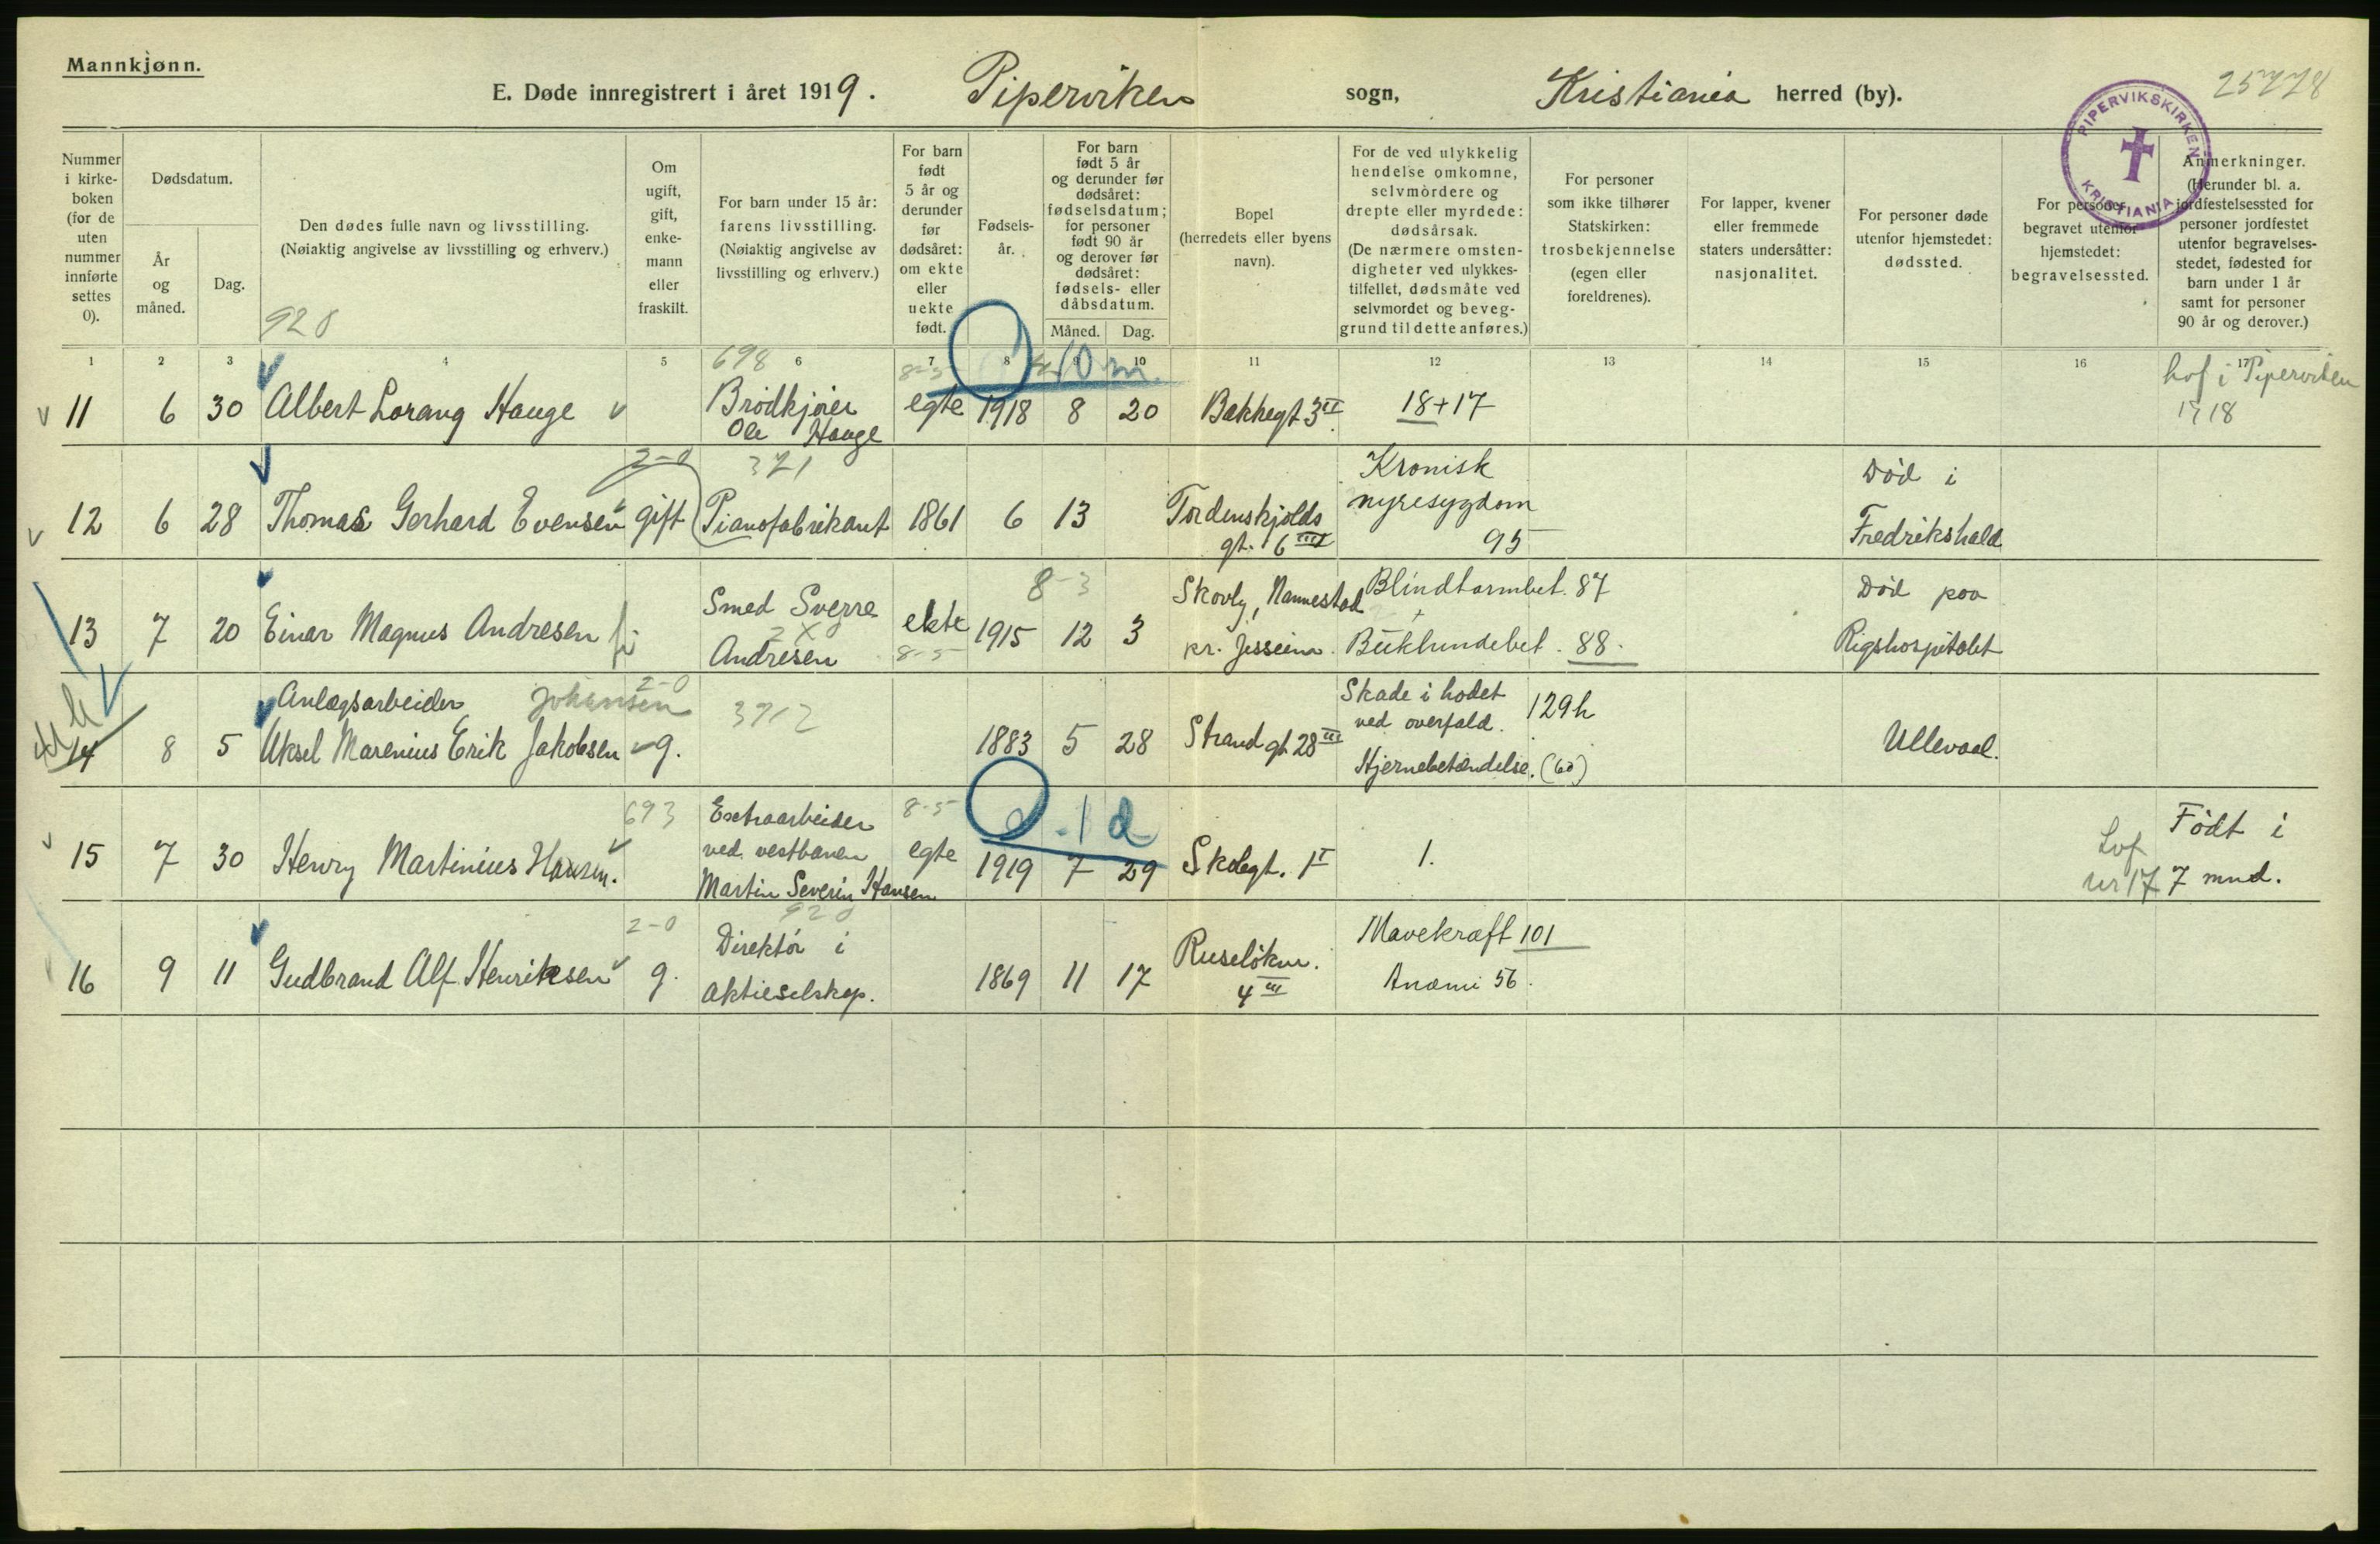 Mannkjønn.
E. Døde innregistrert i året 1919. Piperviken sogn, Kristiania herred (by).
25778
PIPERVIKSKIRKEN KRISTIANIA
Nummer i kirke-boken (for de uten nummer innførte settes 0).
Dødsdatum.
År og måned.
Dag.
Den dødes fulle navn og livsstilling.
(Nøiaktig angivelse av livsstilling og erhverv.)
920
Om ugift, gift, enke-mann eller fraskilt.
For barn under 15 år: farens livsstilling.
(Nøiaktig angivelse av livsstilling og erhverv.)
For barn født 5 år og derunder før dødsåret: om ekte eller uekte født.
Fødsels-år.
For barn født 5 år og derunder før dødsåret: fødselsdatum; for personer født 90 år og derover før dødsåret: fødsels- eller dåbsdatum.
Måned. Dag.
Bopel (herredets eller byens navn).
For de ved ulykkelig hendelse omkomne, selvmordere og drepte eller myrdede: dødsårsak.
(De nærmere omsten-digheter ved ulykkes-tilfellet, dødsmåte ved selvmordet og beveg-grund til dette anføres.)
For personer som ikke tilhører Statskirken: trosbekjennelse (egen eller foreldrenes).
For lapper, kvener eller fremmede staters undersåtter: nasjonalitet.
For personer døde utenfor hjemstedet: dødssted.
For personer begravet utenfor hjemstedet: begravelsessted.
Anmerkninger.
(Herunder bl. a. jordfestelsessted for personer jordfestet utenfor begravelses-stedet, fødested for barn under 1 år samt for personer 90 år og derover.)
1 2 3 4 5 6 7 8 9 10 11 12 13 14 15 16 17
698 8-5 10 m.
11 6 30 Albert Lorang Hauge Brødkjører Ole Hauge egte 1918 8 20 Bakkegt 3 II 18+17 i Piperviken 1918
2-0 321
12 6 28 Thomas Gerhard Evensen gift Pianofabrikant 1861 6 13 Tordenskjolds gt. 6 III Kronisk nyresygdom 95 Død i Fredrikshald
8-3
13 7 20 Einar Magnus Andresen Smed Sverre Andresen ekte 8-5 1915 12 3 Skovly, Nannestad pr. Jessheim. Blindtarmbet. 87 + Bukhindebet. 88. Død paa Rigshospitalet
Anlægsarbeider Johansen 2-0 3712
14 8 5 Aksel Marenius Erik Jakobsen g. 1883 5 28 Strandgt 28 III Skade i hodet ved overfald. 129h Hjernebetændelse. (60) Ullevaal.
693 8-5 1 d
15 7 30 Henry Martinius Hansen. Extraarbeider ved vestbanen Martin Severin Hansen egte 1919 7 29 Skolegt. 1 I 1. nr 17 Født i 7 mnd.
2-0 920
16 9 11 Gudbrand Alf Henriksen g. Direktør i aktieselskap. 1869 11 17 Ruseløkv. 4 III Mavekræft 101 Anæmi 56.